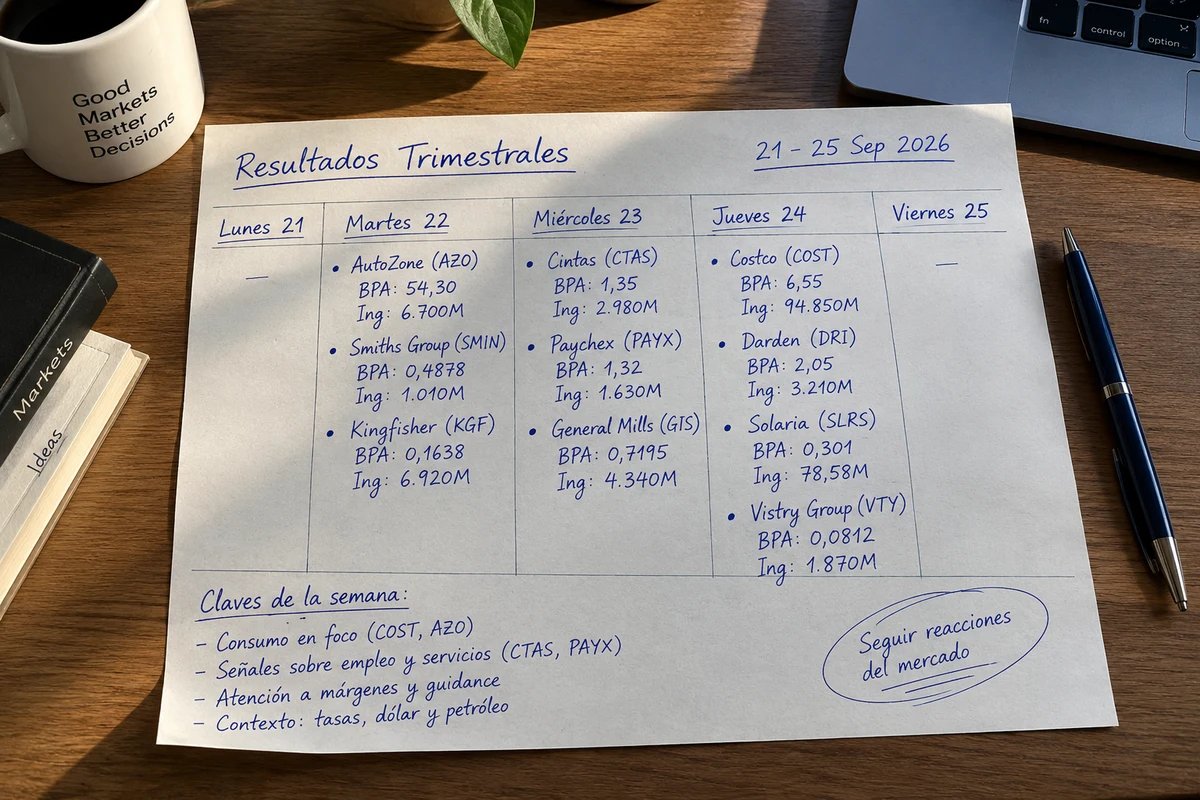 Good
Markets
Better
Decisions
fn
control
option
Markets
Ideas
Resultados Trimestrales
21 - 25 Sep 2026
Lunes 21
—
Martes 22
• AutoZone (AZO)
BPA: 54,30
Ing: 6.700M
• Smiths Group (SMIN)
BPA: 0,4878
Ing: 1.010M
• Kingfisher (KGF)
BPA: 0,1638
Ing: 6.920M
Miércoles 23
• Cintas (CTAS)
BPA: 1,35
Ing: 2.980M
• Paychex (PAYX)
BPA: 1,32
Ing: 1.630M
• General Mills (GIS)
BPA: 0,7195
Ing: 4.340M
Jueves 24
• Costco (COST)
BPA: 6,55
Ing: 94.850M
• Darden (DRI)
BPA: 2,05
Ing: 3.210M
• Solaria (SLRS)
BPA: 0,301
Ing: 78,58M
• Vistry Group (VTY)
BPA: 0,0812
Ing: 1.870M
Viernes 25
—
Claves de la semana:
- Consumo en foco (COST, AZO)
- Señales sobre empleo y servicios (CTAS, PAYX)
- Atención a márgenes y guidance
- Contexto: tasas, dólar y petróleo
Seguir reacciones
del mercado